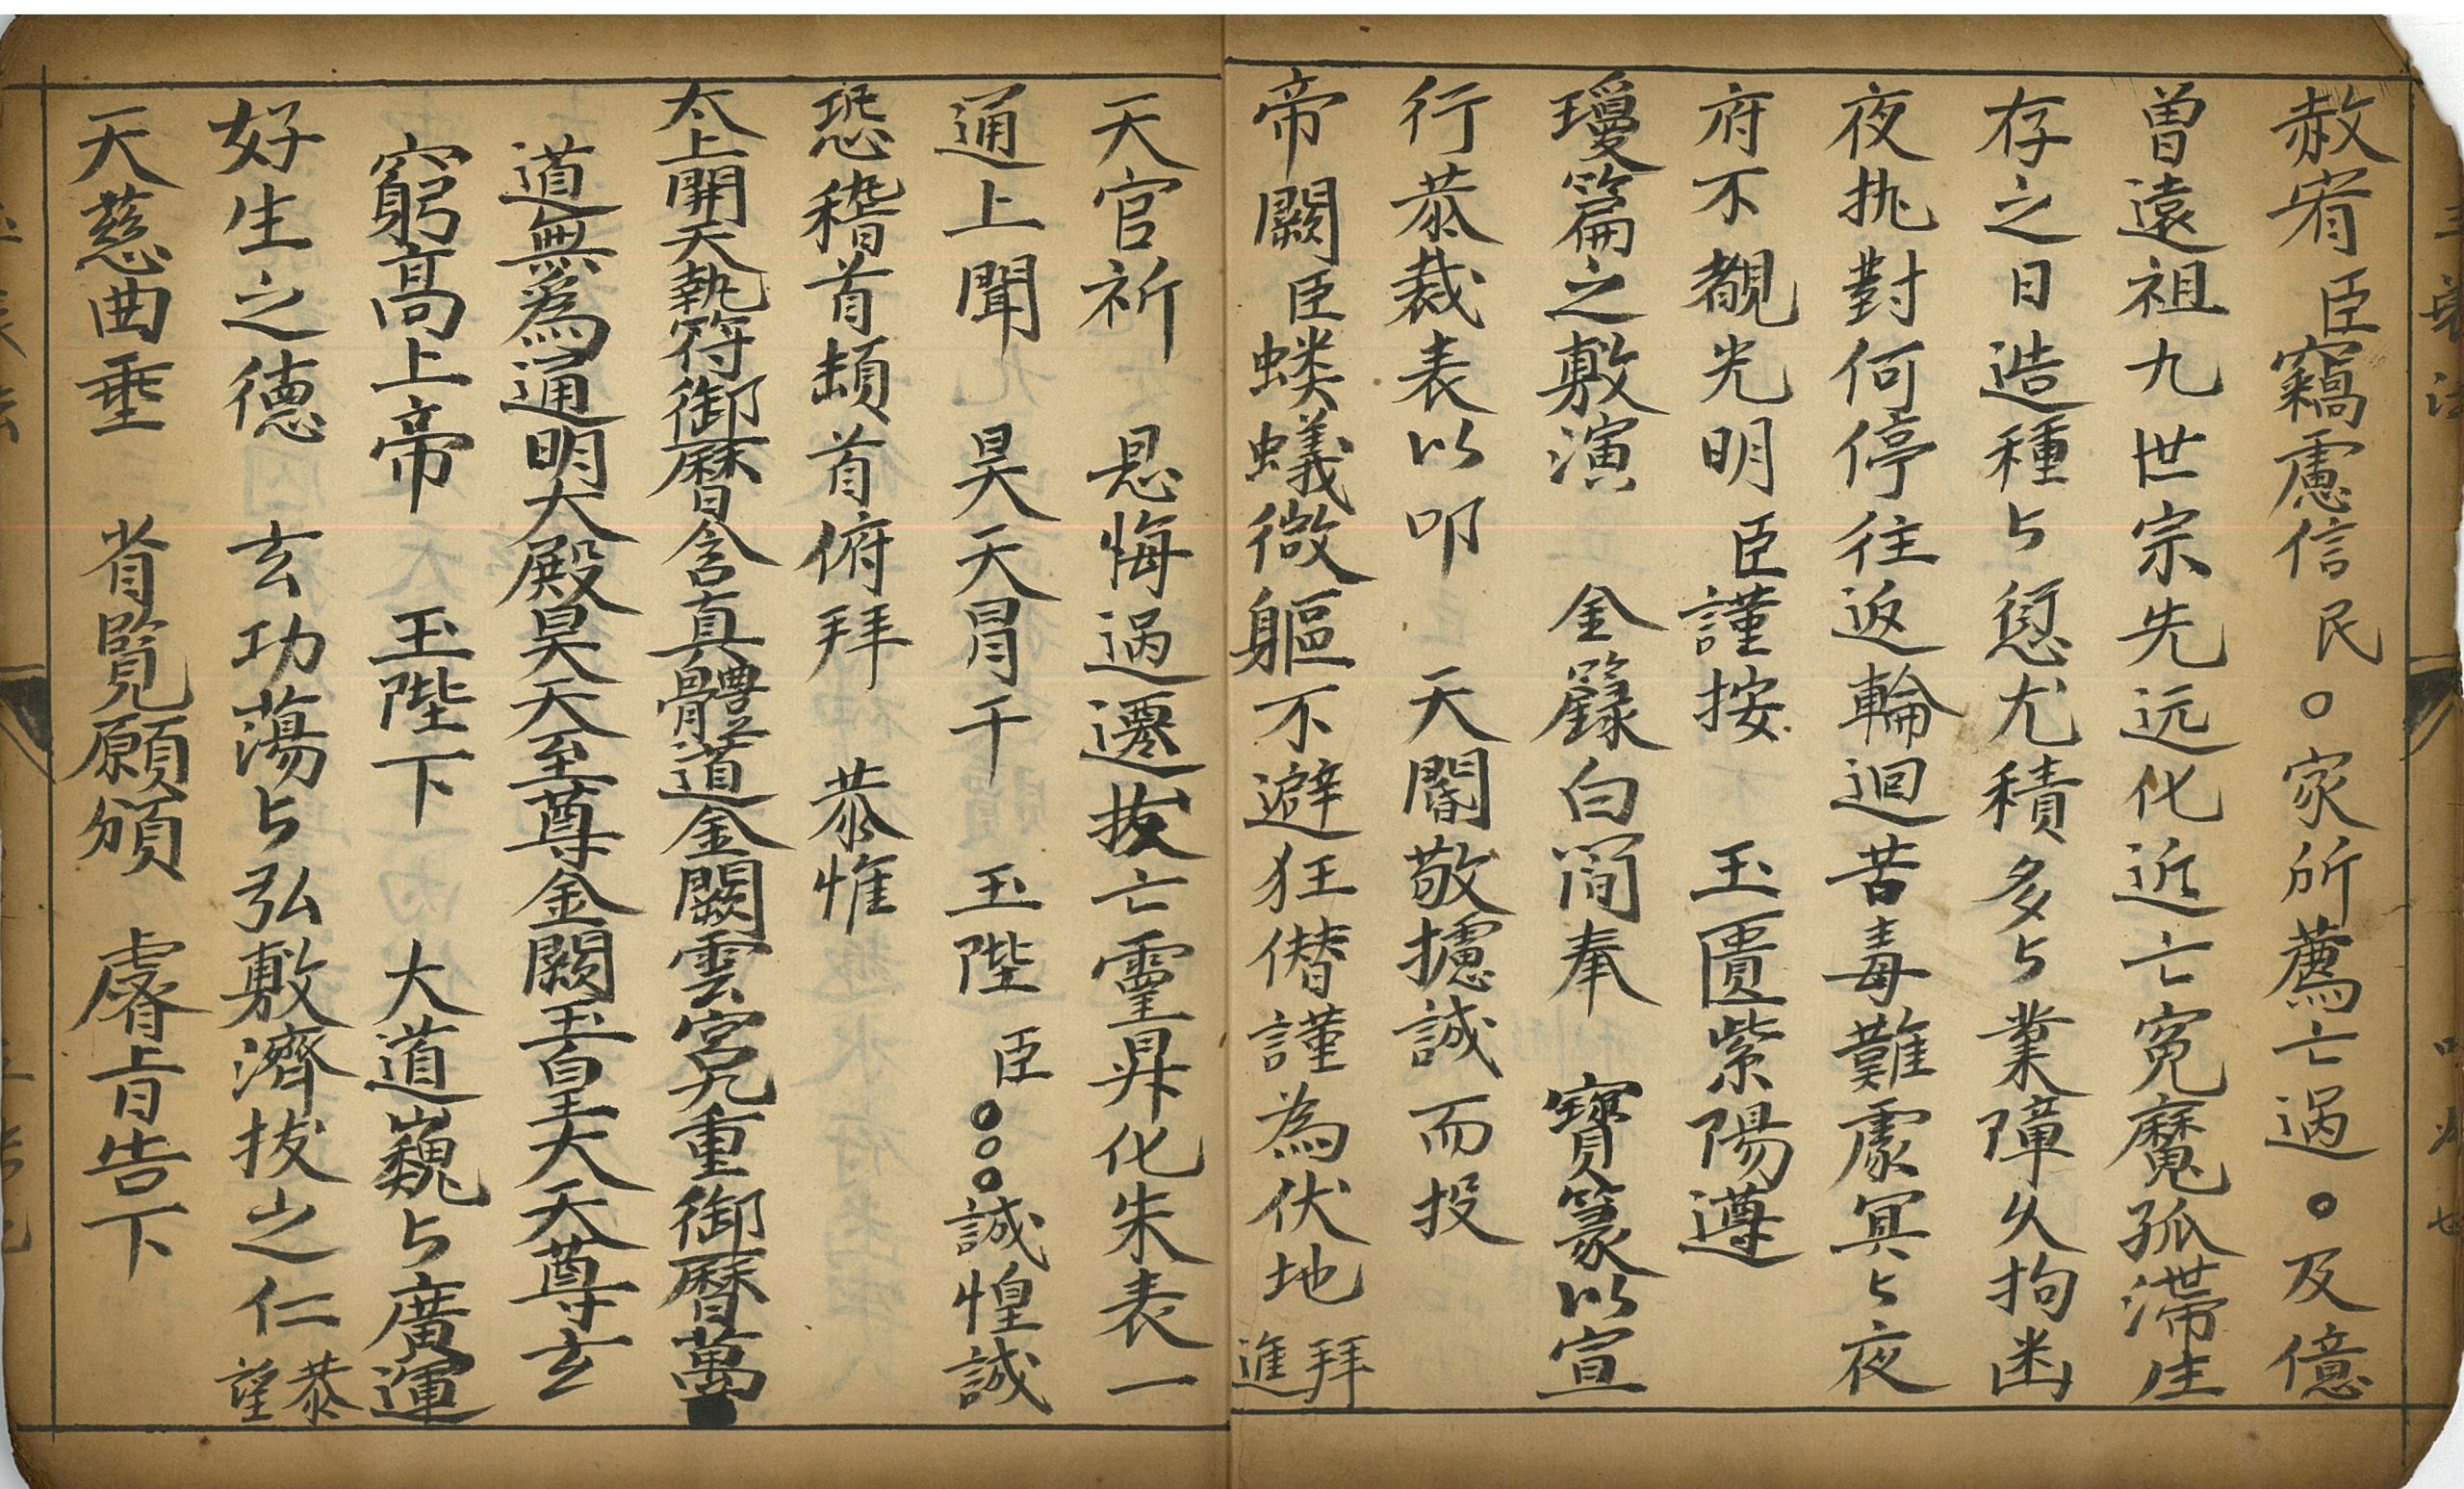 赦宥臣竊慮信民○家所薦亡過○及億
曾遠祖九世宗先远化近亡冤魔孤滯生
存之日造種々愆尤積多々業障久拘幽
夜执對何停往返輪迴苦毒難處冥々夜
府不覩光明 臣謹按 玉匱紫陽遵
瓊篇之敷演 金籙白簡奉 寶篆以宣
行恭裁表以叩 天閽敬攄誠而投
帝闕臣蝼蟻微軀不避狂僭謹為伏地拜進
天官祈 恩悔過遷拔亡靈昇化朱表一
通上聞 昊天冐干 玉陛 臣○○○誠惶誠
恐稽首頓首俯拜 恭惟
太上開天執符御曆含真體道金闕雲宮九重御曆萬
道無為通明大殿昊天至尊金闕玉皇大天尊玄
窮高上帝 玉陛下 大道巍々廣運
好生之德 玄功蕩々弘敷濟拔之仁恭望
天慈曲垂 省覧願頒 睿旨告下